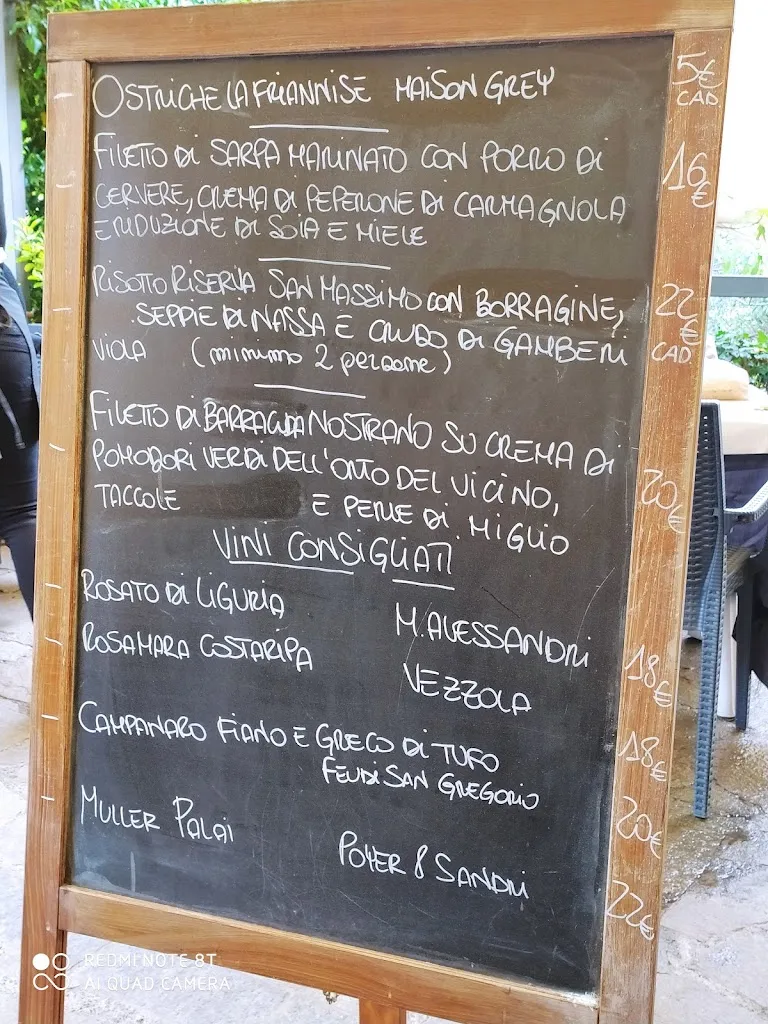 OSTRICHE LA FRIANNISE MAISON GREY 5€ CAD
FILETTO DI SARPA MARINATO CON PORRO DI 16€
CERVERE, CREMA DI PEPERONE DI CARMAGNOLA
E RIDUZIONE DI SOIA E MIELE
RISOTTO RISERVA SAN MASSIMO CON BORRAGINE, 22€ CAD
SEPPIE DI NASSA E CRUDO DI GAMBERI
VIOLA (minimo 2 persone)
FILETTO DI BARRACUDA NOSTRANO SU CREMA DI
POMODORI VERDI DELL'ORTO DEL VICINO, 20€
TACCOLE E PERLE DI MIGLIO
VINI CONSIGLIATI
ROSATO DI LIGURIA M. ALESSANDRI 18€
ROSAMARA COSTARIPA VEZZOLA 18€
CAMPANARO FIANO E GRECO DI TUFO 20€
FEUDI SAN GREGORIO
MULLER PALAI POJER & SANDRI 22€
REDMI NOTE 8T
AI QUAD CAMERA